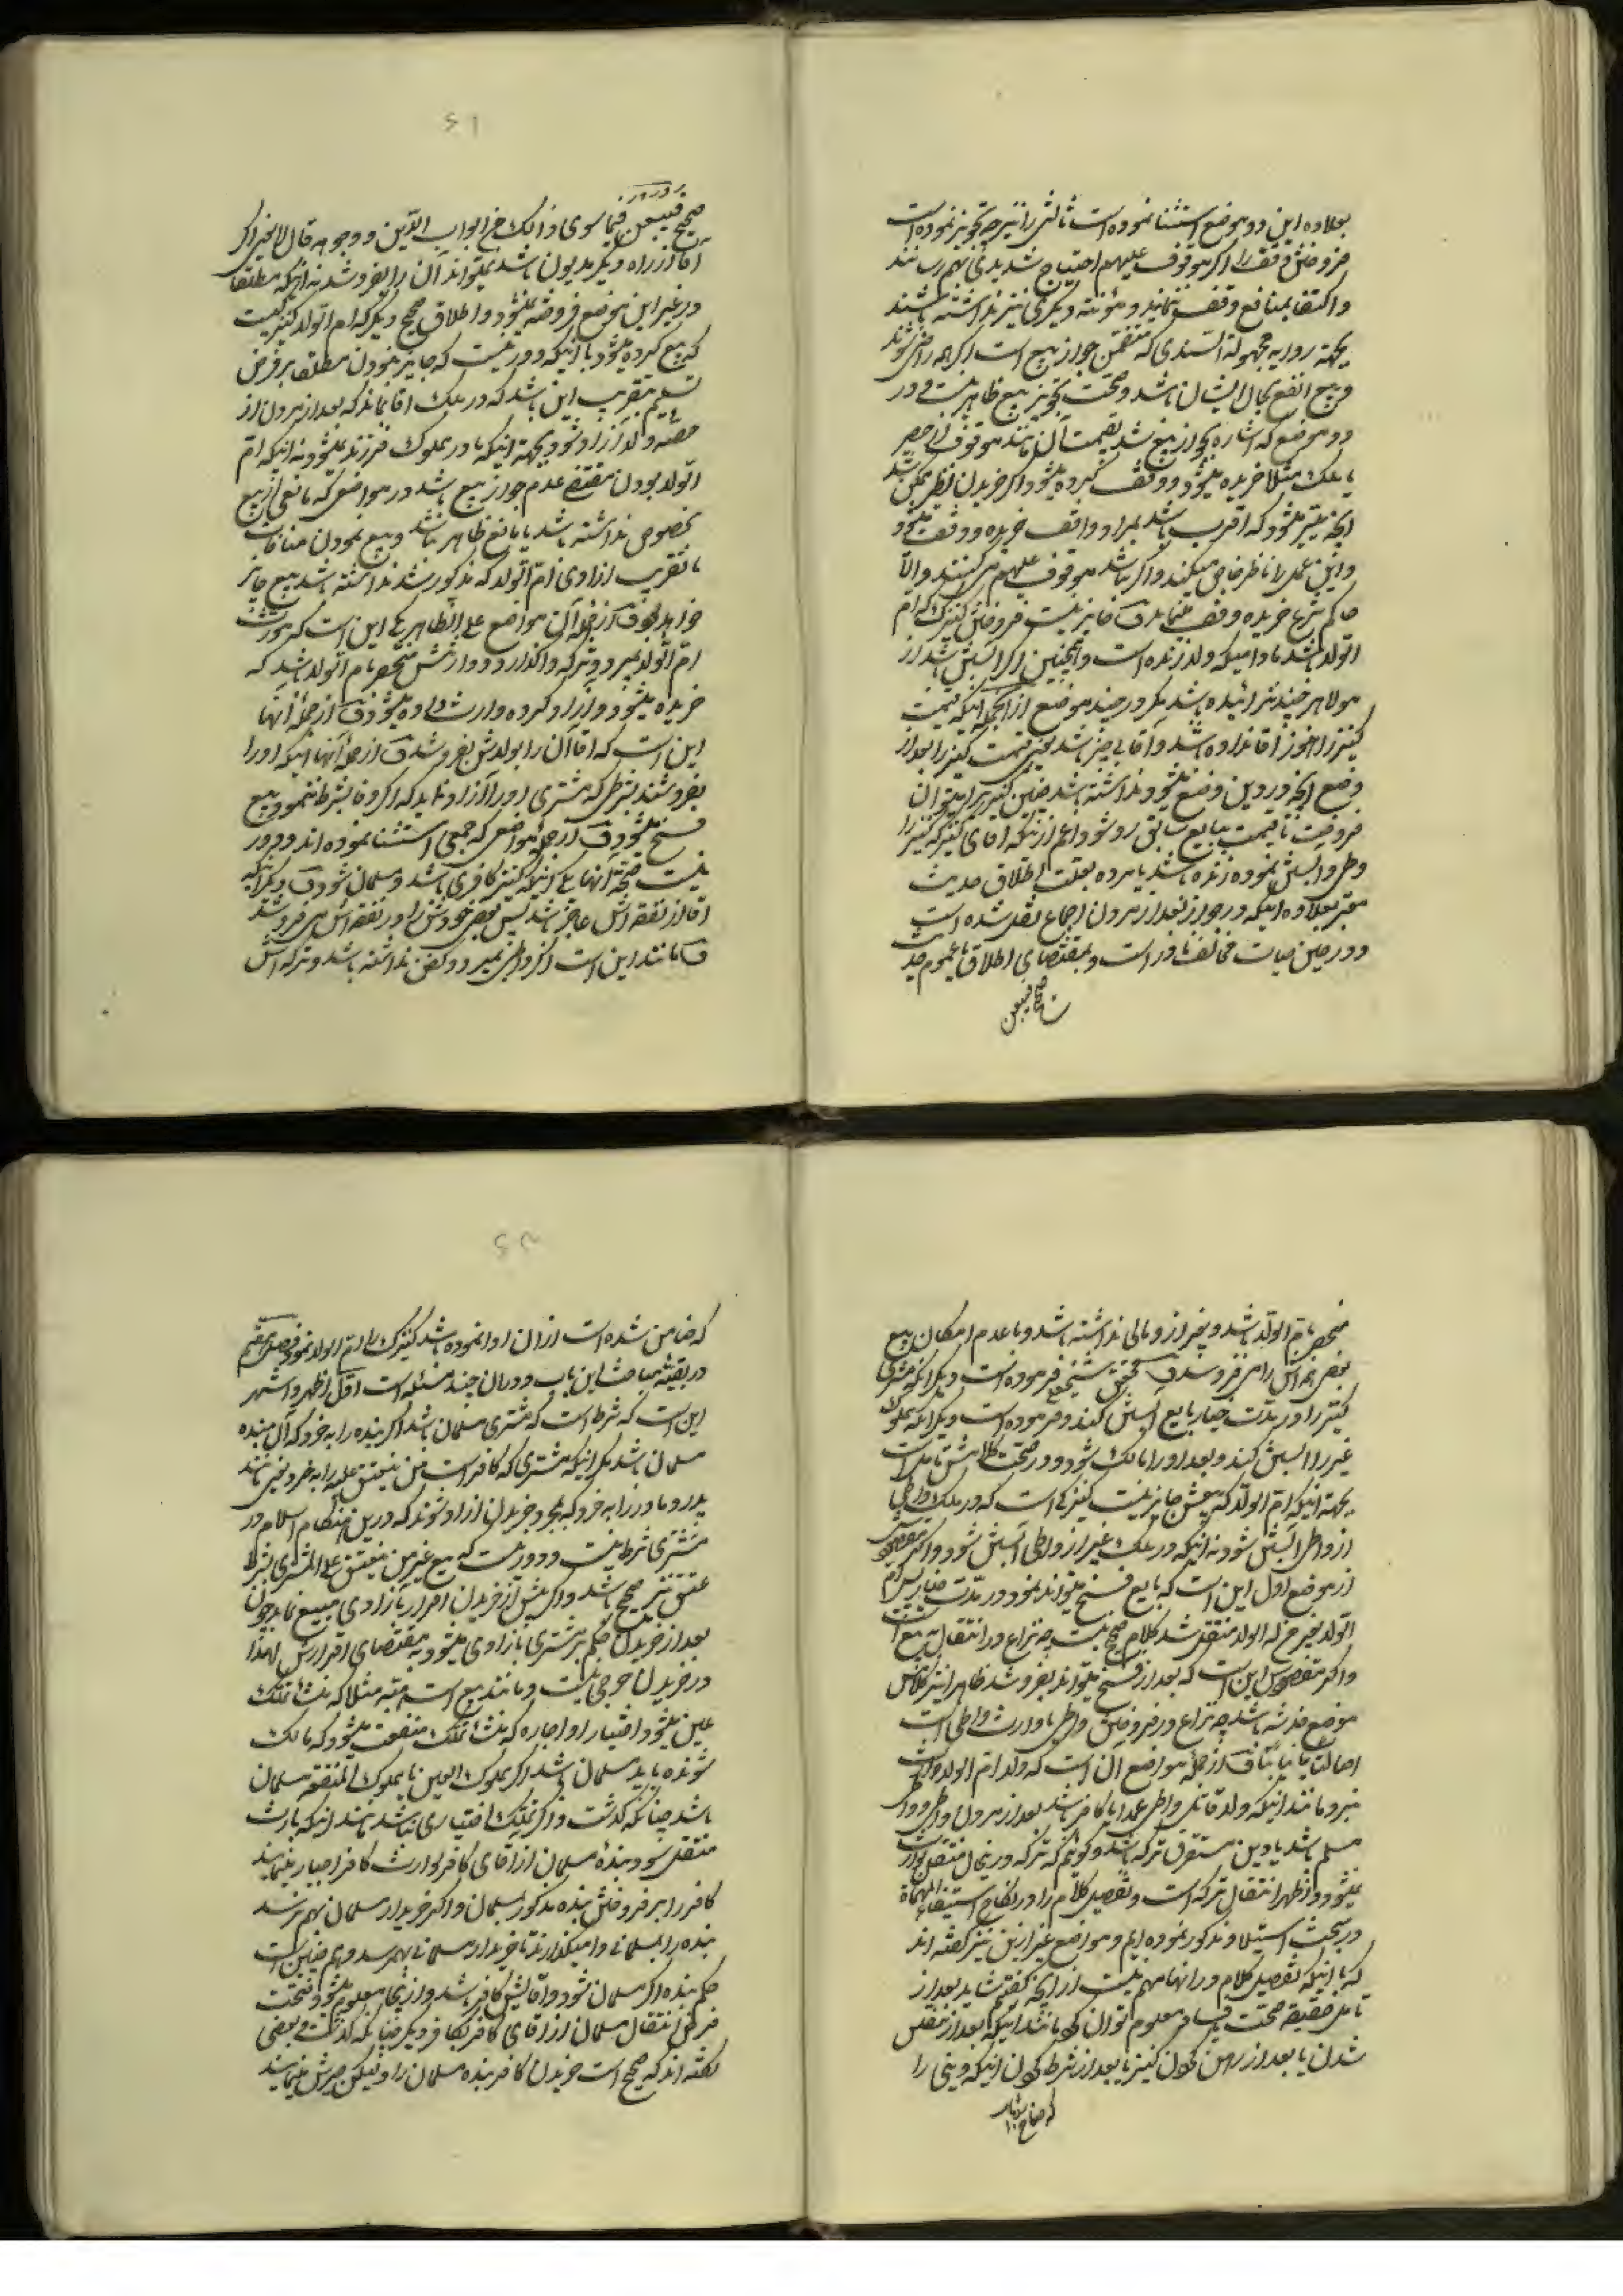 بعلاوه این دو موضع استثنا نموده است ثالثی را نیز چه تجویز نموده است
فروختن وقف را اگر موقوف علیهم احتیاج شدیدی بهم رسانند
واکتفا بمنافع وقف ننمایند و مؤنته دیگری نیز نداشته باشند
بجهة روایه مجهولة السندی که متضمن جواز بیع است اگر همه راضی شوند
و بیع انفع بحال ایشان باشد و صحت تجویز بیع ظاهر نیست و در
دو موضع که اشاره بجواز بیع شد بقیمت آن مانند موقوف
یا ملک مثلا خریده میشود و وقف کرده میشود و اگر خریدن نظیر ممکن نباشد
آنچه میسر میشود که اقرب باشد بمراد واقف خریده و وقف میشود
و این عمل را ناظر خاص میکند و اگر نباشد موقوف علیهم می کنند والّا
حاکم شرع خریده وقف مینماید ف جایز نیست فروختن کنیزک که ام
الولد باشد مادامیکه ولد زنده است و همچنین اگر آبستن باشد از
مولا هر چند نزائیده باشد مگر در چند موضع از آنجمله اینکه قیمت
کنیز را هنوز آقا نداده باشد و آقا بی چیز باشد یعنی قیمت کنیز را بعد از
وضع آنچه در دین وضع میشود نداشته باشد چنین کنیز را میتوان
فروخت تا قیمت ببایع سابق رد شود اعم از اینکه آقای کنیز که کنیز را
وطی و آبستن نموده زنده باشد یا مرده بعلت اطلاق حدیث
معتبر بعلاوه اینکه در جواز بعد از مردن اجماع نقل شده است
و در حین حیات مخالف نادر است و بمقتضای اطلاق یا عموم حدیث
صحیح فیبعن
۶۱
صحیح فیبعن فیما سوی ذالک من ابواب الدّین و وجوهه قال لا یعنی اگر
آقا از راه دیگر مدیون باشد نمیتواند آن را بفروشد نه اینکه مطلقا
در غیر این موضع فروخته نمیشود و اطلاق صحیح دیگر که ام الولد کنیزیست
که بیع کرده میشود با اینکه دور نیست که جایز نبودن مطلقا بر فرض
تسلیم بتقریب این باشد که در ملک آقا بماند که بعد از مردن از
حصّه ولد آزاد شود بجهة اینکه مادر مملوک فرزند نمیشود نه اینکه ام
الولد بودن مقتضی عدم جواز بیع باشد در مواضعی که مانعی از بیع
بخصوص نداشته باشد یا مانع ظاهر نباشد و بیع نمودن منافات
با تقریب آزادی ام الولد که مذکور شد نداشته باشد بیع جایز
خواهد بود ف از جمله آن مواضع علی الظاهر یکی این است که مورّث
ام الولد بمیرد و ترکه واگذارد و وارثش منحصر بام الولد باشد که
خریده میشود و آزاد کرده وارث داده میشود ف از جمله آنها
این است که آقا آن را بولدش بفروشد ف از جمله آنها اینکه او را
بفروشند بشرطی که مشتری او را آزاد نماید که اگر وفا بشرط ننمود بیع
فسخ میشود ف از جمله مواضعی که جمعی استثنا نموده اند و دور
نیست صحّة آنها یکی اینکه کنیز کافری باشد و مسلمان شود ف دیگر اینکه
آقا از نفقه اش عاجز باشد پس بعض خودش را در نفقه اش می فروشد
ف مانند این است اگر واطی بمیرد و کفن نداشته باشد و ترکه اش
منحصر بام الولد باشد و بغیر از او مالی نداشته باشد و با عدم امکان بیع
بعض همه اش را می فروشند ف محقق شیخ علی فرموده است دیگر آنکه مشتری
کنیز را در مدّت خیار بایع آبستن کند و فرموده است دیگر آنکه مملوکه
غیر را آبستن کند و بعد او را مالک شود و در صحّت کلامش تأمل است
بجهة اینکه ام الولد که بیعش جایز نیست کنیزکی است که در ملک واطی
از واطی آبستن شود نه اینکه در ملک غیر از واطی آبستن شود و اگر مقصود
از موضع اول این است که بایع فسخ میتواند نمود در مدّت خیار پس ام
الولد بغیر ام الولد منتقل شد کلام صحیح نیست چه نزاع در انتقال بیع است
و اگر مقصودش این است که بعد از فسخ میتواند بفروشد ظاهرا نیز کلامش
موضع خدشه باشد چه نزاع در فروختن واطی یا وارث واطی است
اصالتا یا نیابتا ف از جمله مواضع آن است که ولد ام الولد وارث
نبرد مانند اینکه ولد قاتل واطی عمدا یا کافر باشد بعد از مردن واطی و وارث
مسلم باشد یا دین مستغرق ترکه باشد و گوئیم که ترکه در اینحال منتقل بوارث
نمیشود و اظهر انتقال ترکه است و تفصیل کلام را در نکاح استیفاء
در مبحث استیلاد مذکور نموده ایم و مواضع غیر ازین نیز گفته اند
که با اینکه تفصیل کلام در آنها مهم نیست از آنچه گفتیم شاید بعد از
تأمل حقیقة صحت یا فساد معلوم توان کرد مانند اینکه بعد از مفلس
شدن یا بعد از رهن کردن کنیز یا بعد از شرط کردن اینکه دینی را
که ضامن
۶۲
که ضامن شده است از آن ادا نموده باشد کنیزک را ام الولد نمود فصل ششم
در بقیّه مباحث این باب و در آن چند مسئله است اوّل اظهر و اشهر
این است که شرط است که مشتری مسلمان باشد اگر بنده را بخرد که آن بنده
مسلمان باشد مگر اینکه مشتری که کافر است من ینعتق علیه را بخرد یعنی مانند
پدر و مادر را بخرد که بمجرد خریدن آزاد شوند که در این هنگام اسلام در
مشتری شرط نیست و دور نیست که بیع غیر من ینعتق علی المشتری بشرط
عتق نیز صحیح باشد و اگر پیش از خریدن اقرار بآزادی مبیع نماید چون
بعد از خریدن حکم بر مشتری بآزادی میشود بمقتضای اقرارش لهذا
در خریدن حرجی نیست و مانند بیع است هبه مثلا که منشأ تملّک
عین میشود اختیارا و اجاره که منشأ تملّک منفعت میشود که مالک
شونده باید مسلمان باشد اگر مملوک العین یا مملوک المنفعة مسلمان
باشد چنانکه گذشت و اگر تملّک اختیاری نباشد مانند اینکه بارث
منتقل شود بنده مسلمان از آقای کافر بوارث کافر اجبار مینمایند
کافر را بر فروختن بنده مذکور بمسلمان و اگر خریدار مسلمان بهم نرسد
بنده را بمسلمانی وا میگذارند تا خریدار مسلمانی بهم رسد و هم چنین است
حکم بنده اگر مسلمان شود و آقایش کافر باشد و از اینجا معلوم میشود صحّت
فرض انتقال مسلمان از آقای کافر بکافر دیگر چنانکه گذشت و بعضی
گفته اند که صحیح است خریدن کافر بنده مسلمان را ولیکن جبرش مینمایند